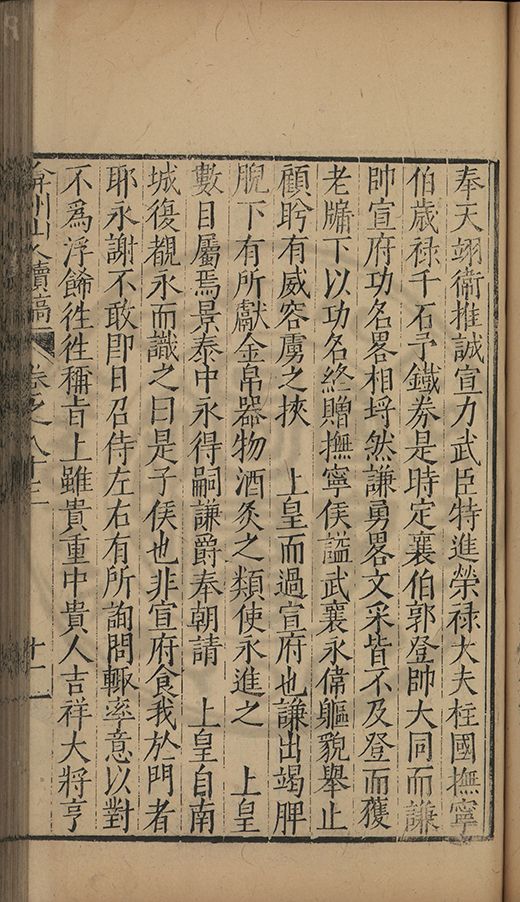 奉天翊衛推誠宣力武臣特進榮禄大夫柱國撫寧
伯歲禄千石予鐵券是時定襄伯郭登帥大同而謙
帥宣府功名畧相埒然謙勇畧文采皆不及登而獲
老牖下以功名終贈撫寧侯謚武襄永偉軀貌舉止
顧盻有威容虜之挾 上皇而過宣府也謙出謁脾
睨下有所獻金帛器物酒炙之類使永進之 上皇
數目屬焉景泰中永得嗣謙爵奉朝請 上皇自南
城復覩永而識之曰是子侯也非宣府食我於門者
耶永謝不敢即日召侍左右有所詢問輙率意以對
不爲浮餙徃徃稱㫖上雖貴重中貴人吉祥大將亨
弇州山人續稿 卷之八十三 十一